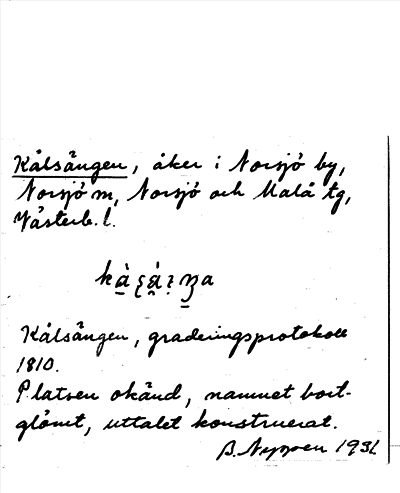 Kålsången, åker i Norsjö by,
Norsjö sn, Norsjö och Malå tg,
Västerb. l.
Kålsången, graderingsprotokoll
1810.
Platsen okänd, namnet bort-
glömt, uttalet konstruerat.
1931